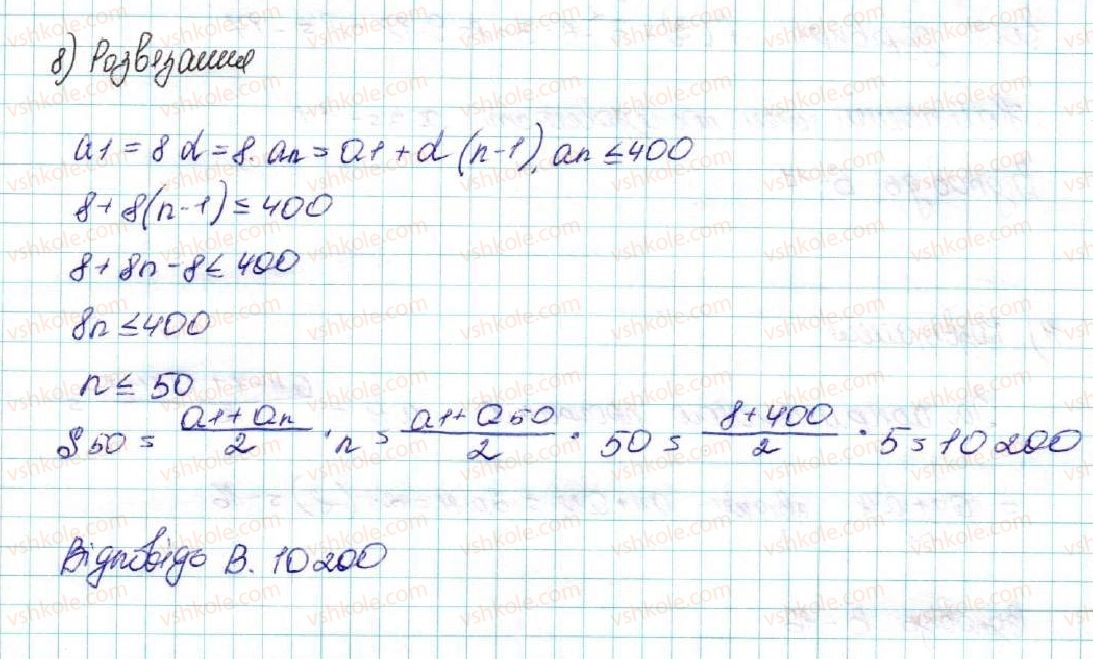 8) Розвезання
a1 = 8 d = 8. an = a1 + d (n-1), an ≤ 400
8 + 8(n-1) ≤ 400
8 + 8n - 8 ≤ 400
8n ≤ 400
n ≤ 50
S50 = (a1 + an)/2 · n = (a1 + a50)/2 · 50 = (8 + 400)/2 · 5 = 10200
Відповідь В. 10200